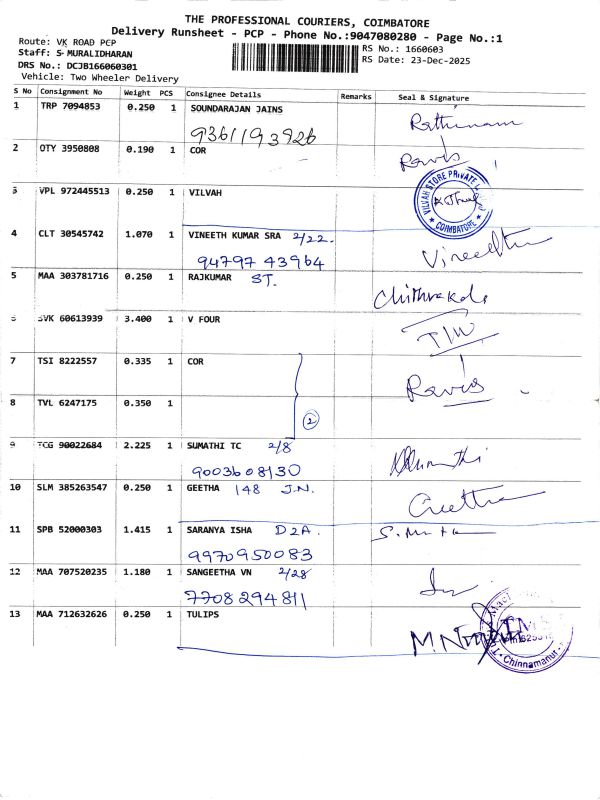 THE PROFESSIONAL COURIERS, COIMBATORE
Delivery Runsheet - PCP - Phone No.:9047080280 - Page No.:1
Route: VK ROAD PCP
Staff: S MURALIDHARAN
DRS No.: DCJB166060301
Vehicle: Two Wheeler Delivery
RS No.: 1660603
RS Date: 23-Dec-2025
S No Consignment No Weight PCS Consignee Details Remarks Seal & Signature
1 TRP 7094853 0.250 1 SOUNDARAJAN JAINS
9361193926
Rathinam
2 OTY 3950808 0.190 1 COR
Ravis
3 VPL 972445513 0.250 1 VILVAH
VILVAH STORE PRIVATE
COIMBATORE
4 CLT 30545742 1.070 1 VINEETH KUMAR SRA 2/22.
94797 43964
Vineeth
5 MAA 303781716 0.250 1 RAJKUMAR ST.
Chithrakala
6 SVK 60613939 3.400 1 V FOUR
7 TSI 8222557 0.335 1 COR
Ravis
8 TVL 6247175 0.350 1
2
9 TCG 90022684 2.225 1 SUMATHI TC 2/8
9003608130
Sumathi
10 SLM 385263547 0.250 1 GEETHA 148 J.N.
Geetha
11 SPB 52000303 1.415 1 SARANYA ISHA D2A.
9970950083
12 MAA 707520235 1.180 1 SANGEETHA VN 2/28
7708294811
13 MAA 712632626 0.250 1 TULIPS
Chinnamanur